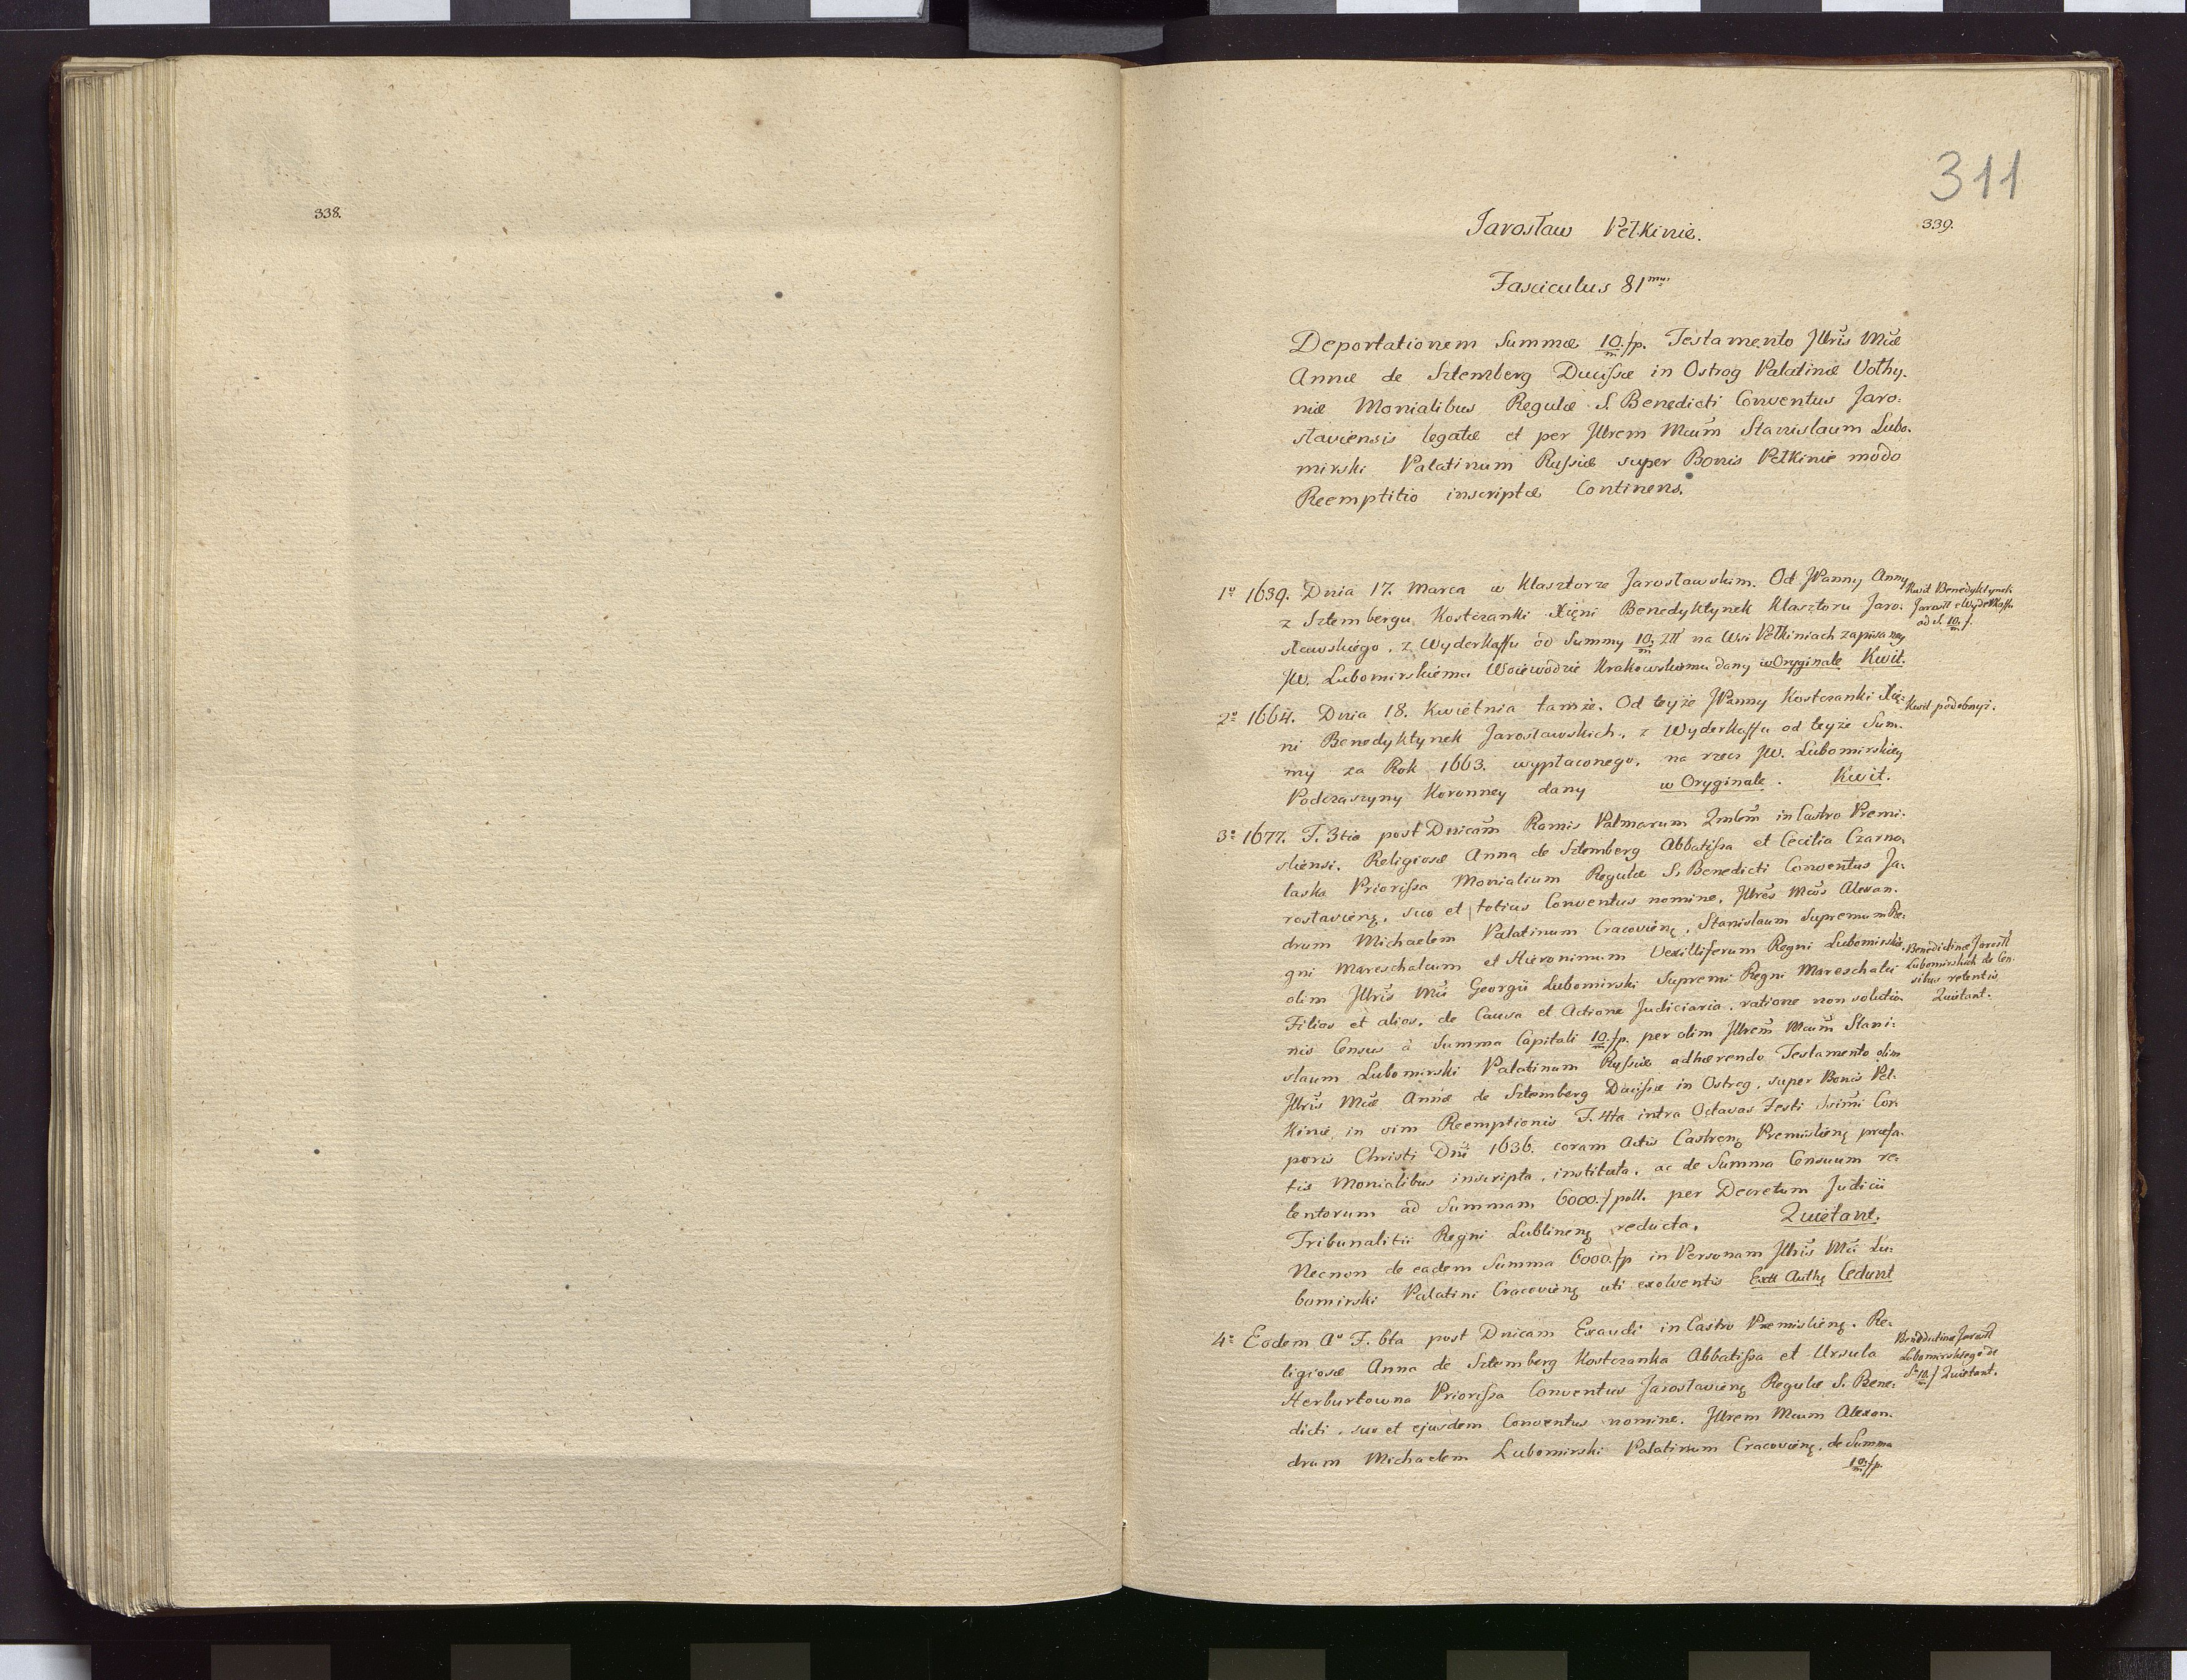 338.
311
339.
Jarosław Pełkinie.
Fasciculus 81mus
Deportationem Summæ 10/m fp. Testamento Jllris Mcæ
Annæ de Sztemberg Ducißæ in Ostrog Palatinæ Volhy-
niæ Monialibus Regulæ S. Benedicti Conventus Jaro-
slaviensis legatæ et per Jllrem Mcum Stanislaum Lubo-
mirski Palatinum Rußiæ super Bonis Pełkinie modo
Reemptitio inscriptæ Continens.
1º 1639. Dnia 17. Marca w Klasztorze Jarosławskim. Od JPanny Anny
z Sztembergu Kostczanki Xięni Benedyktynek Klasztoru Jaro-
sławskiego, z Wyderkaffu od Summy 10/m Złł na Wsi Pełkiniach zapisaney
JW. Lubomirskiemu Woiewodzie Krakowskiemu dany w Oryginale Kwit.
Kwit Benedyktynek
Jarosł z Wyderkaffu
od S. 10/m f.
2º 1664. Dnia 18. Kwietnia tamże. Od teyże JPanny Kostczanki Xię-
ni Benedyktynek Jarosławskich, z Wyderkaffu od teyże Sum-
my za Rok 1663. wypłaconego, na rzecz JW. Lubomirskiey
Podczaszyny Koronney dany w Oryginale. Kwit.
Kwit podobnyż.
3º 1677. F. 3tia post Dnicam Ramis Palmarum Qndlem in Castro Premi-
sliensi. Religiosæ Anna de Sztemberg Abbatißa et Cecilia Czarno-
laska Priorißa Monialium Regulæ S. Benedicti Conventus Ja-
roslavienș, suo et totius Conventus nomine, Jllres Mcos Alexan-
drum Michaelem Palatinum Cracovienș, Stanislaum Supremum Re-
gni Mareschalcum et Hieronimum Vexilliferum Regni Lubomirskie,
olim Jllris Mci Georgii Lubomirski Supremi Regni Mareschalci
Filios et alios, de Causa et Actione Judiciaria, ratione non solutio-
nis Census à Summa Capitali 10/m fp. per olim Jllrem Mcum Stani-
slaum Lubomirski Palatinum Rußiæ adhærendo Testamento olim
Jllris Mcæ Annæ de Sztemberg Ducißæ in Ostrog, super Bonis Peł-
kinie, in vim Reemptionis F. 4ta intra Octavas Festi Ssimi Cor-
poris Christi Dni 1636. coram Actis Castrenș Premislienș præfa-
tis Monialibus inscripta, instituta, ac de Summa Censuum re-
tentorum ad Summam 6000. f poll. per Decretum Judicii
Tribunalitii Regni Lublinenș reducta, Quietant.
Necnon de eadem Summa 6000. fp in Personam Jllris Mci Lu-
bomirski Palatini Cracovienș uti exolventis Extt Authș Cedunt
Benedictinæ Jarosłł
Lubomirskich de Cen-
sibus retentis
Quietant.
4º Eodem Aº F. 6ta post Dnicam Exaudi in Castro Premislienș. Re-
ligiosæ Anna de Sztemberg Kostczanka Abbatißa et Ursula
Herburtowna Priorißa Conventus Jaroslavienș Regulæ S. Bene-
dicti, suo et ejusdem Conventus nomine, Jllrem Mcum Alexan-
drum Michaelem Lubomirski Palatinum Cracovienș, de Summa
10/m fp.
Benedictinæ Jarosłł
Lubomirskiego de
Sa 10/m f Quietant.